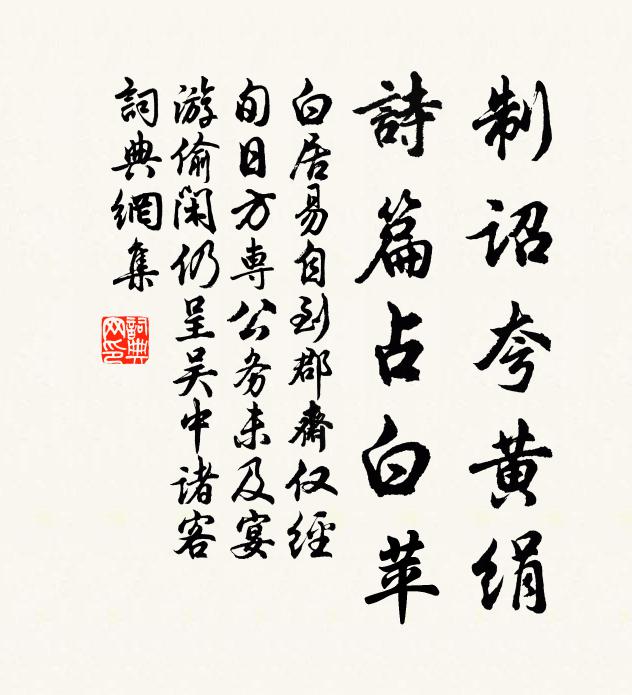 制詔夸黃绢
詩篇占白苹
白居易自到郡齋仅經
旬日方専公务未及宴
游偷閑仍呈吴中诸客
詞典網集
詞典
网印